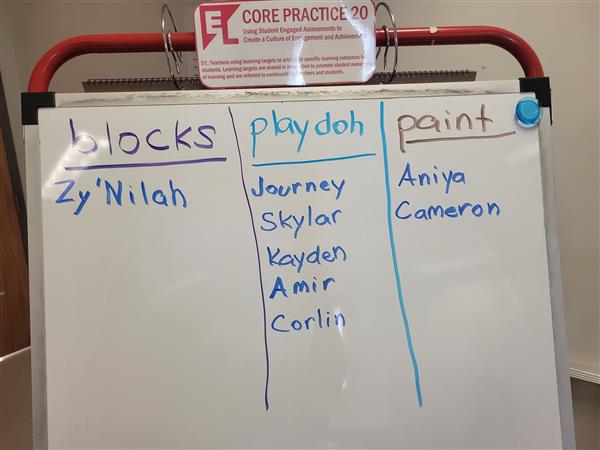 EL
CORE PRACTICE 20
Using Student Engaged Assessments to
Create a Culture of Engagement and Achievement
D1: Teachers using learning targets to specific learning outcomes for
students. Learning targets are shared in to promote student
of learning and are referred to by teachers and students.
blocks
Zy'Nilah
playdoh
Journey
Skylar
Kayden
Amir
Corlin
paint
Aniya
Cameron